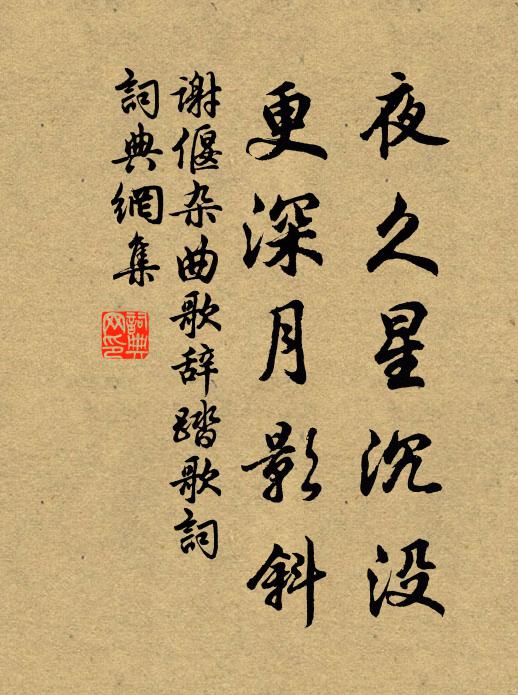 夜久星沉没
更深月影斜
谢偃杂曲歌辞踏歌詞
詞典網集
詞典网印